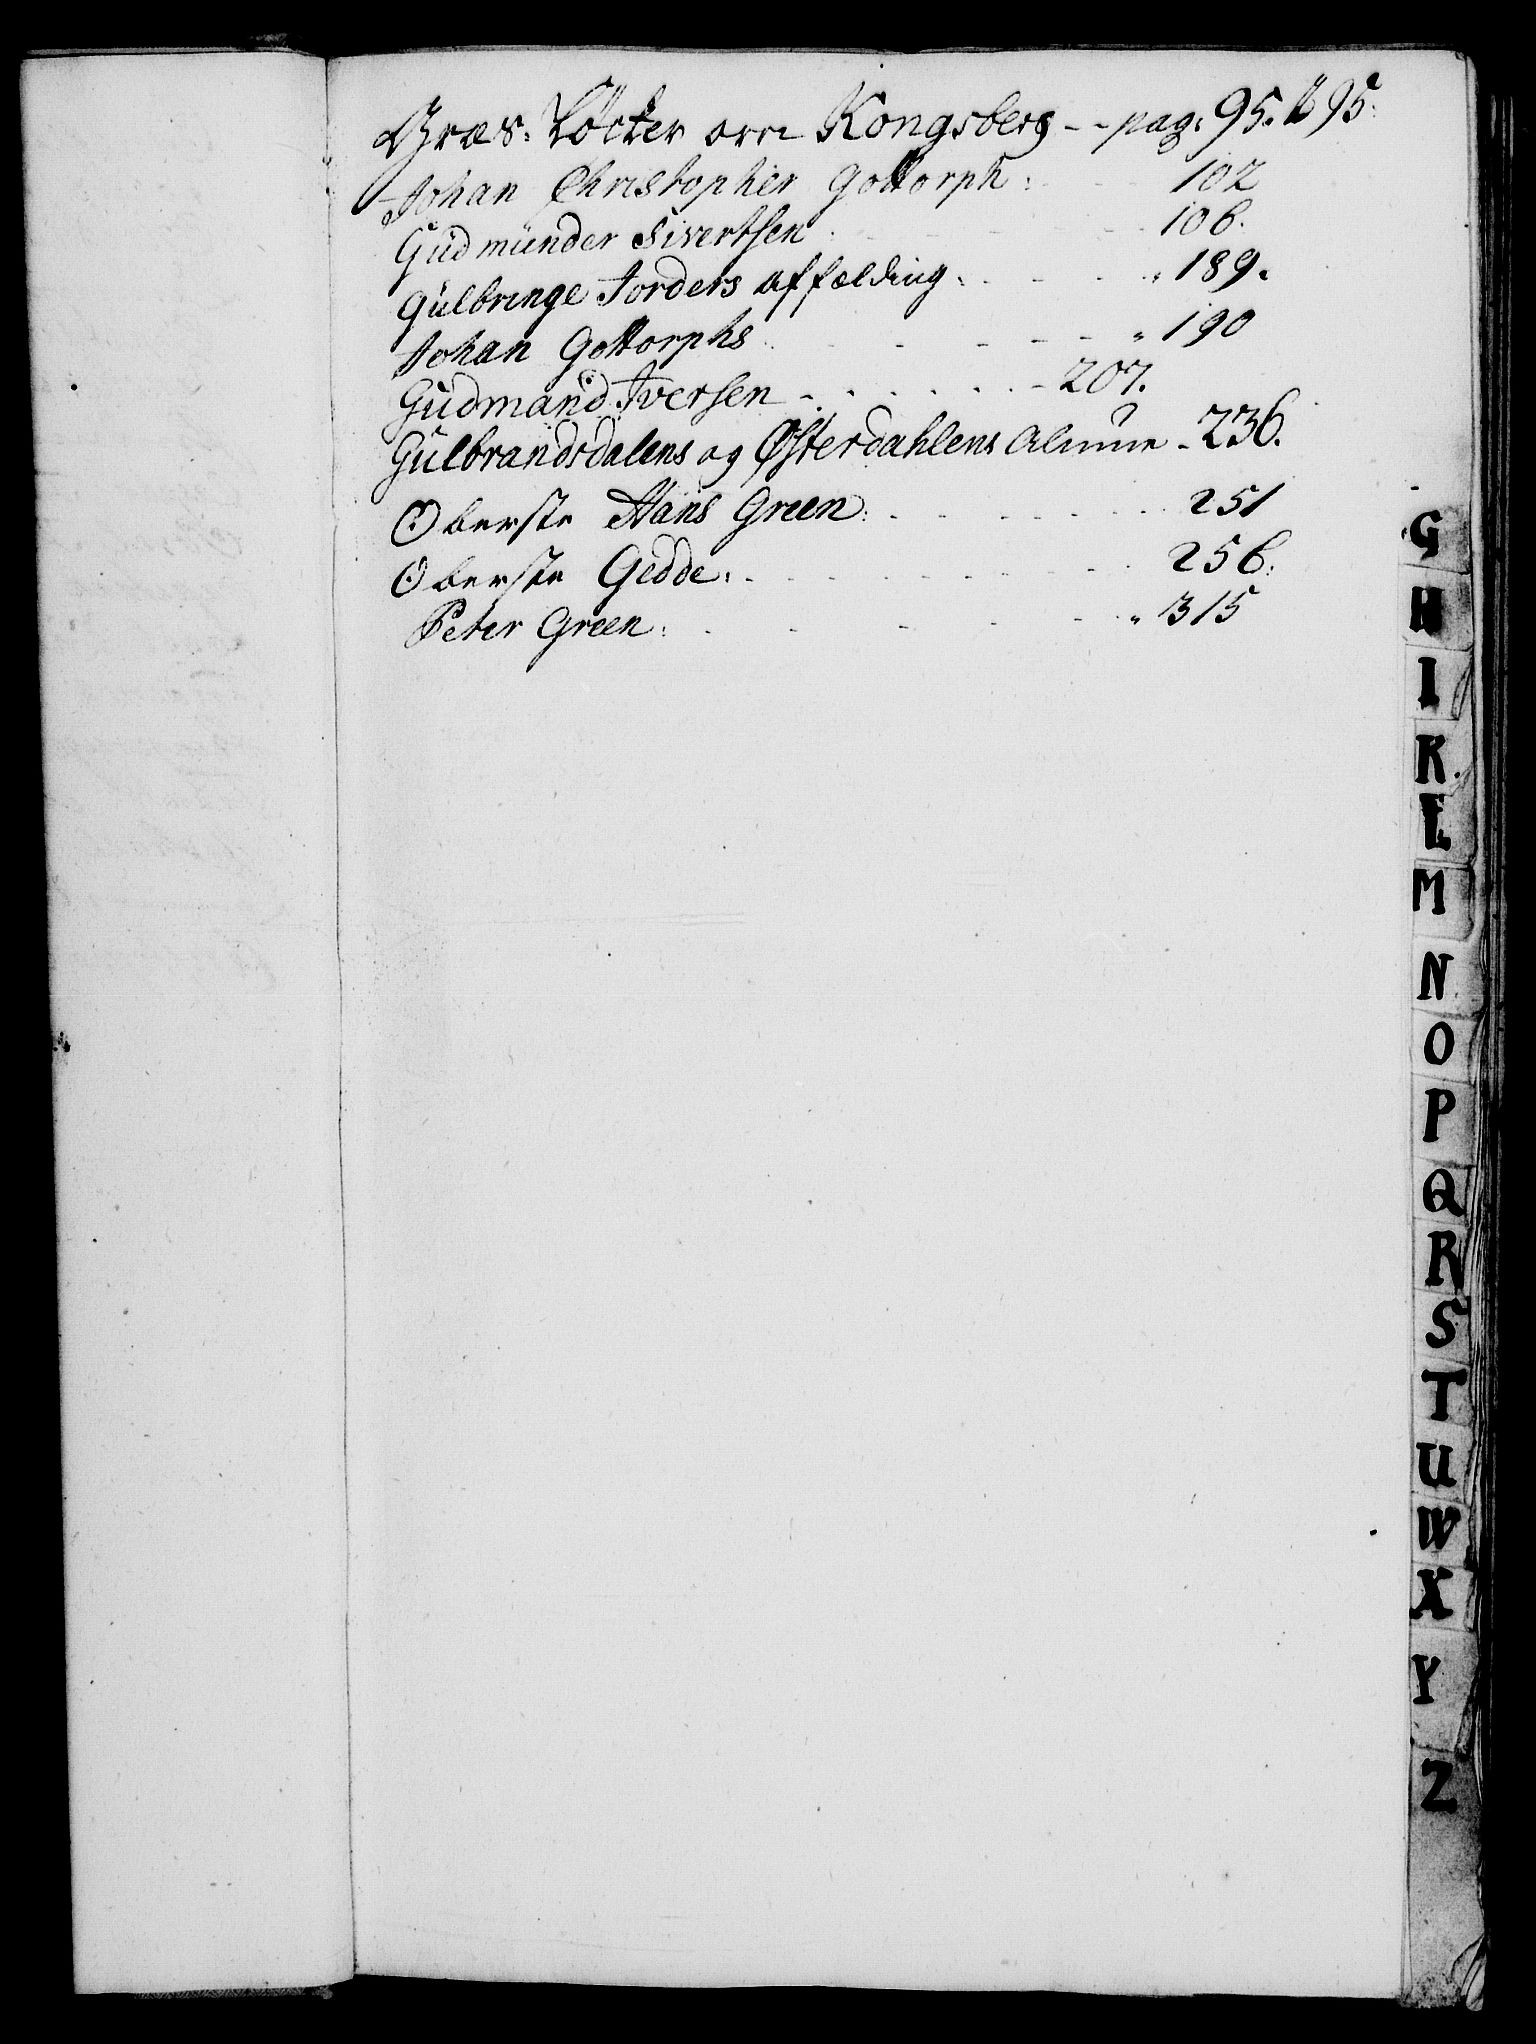 Græs: Løcker om Kongsberg - - pag: 95. & 95.
Johan Christopher Gottorph: 102
Gudmunder Sivertsen 106.
Gulbringe Jorders affælding: 189.
Johan Gottorphs 190
Gudmand Iversen - 207.
Gulbrandsdalens og Østerdahlens Almue - 236.
Oberste Hans Green: 251
Oberste Gedde: 256.
Peter Green: 315
G
H
I
K
L
M
N
O
P
Q
R
S
T
U
W
X
Y
Z